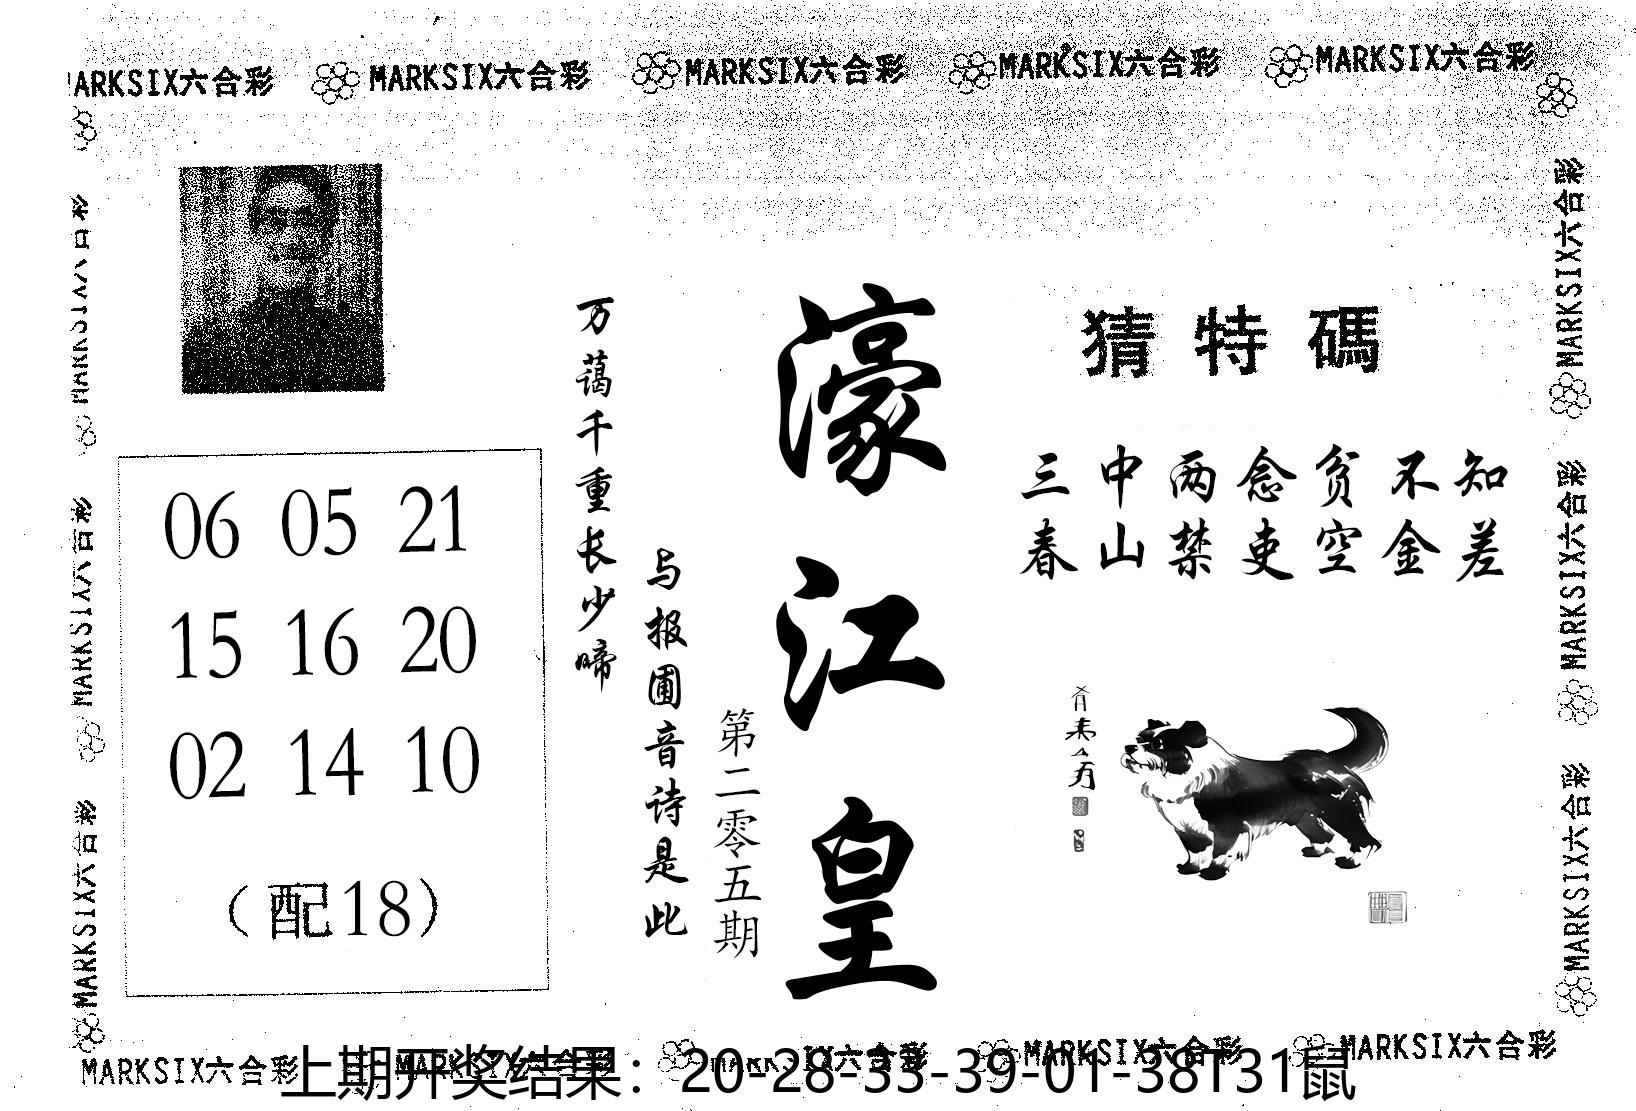 MARKSIX六合彩 MARKSIX六合彩 MARKSIX六合彩 MARKSIX六合彩 MARKSIX六合彩
MARKSIX六合彩
MARKSIX六合彩
MARKSIX六合彩
MARKSIX六合彩
MARKSIX六合彩
MARKSIX六合彩
06 05 21
15 16 20
02 14 10
（配18）
万蔼千重长少啼
与报圃音诗是此
第二零五期
濠江皇
猜特碼
三中两念贫不知
春山禁吏空金差
MARKSIX六合彩 MARKSIX六合彩 MARKSIX六合彩 MARKSIX六合彩 MARKSIX六合彩
上期开奖结果：20-28-33-39-01-38T31鼠